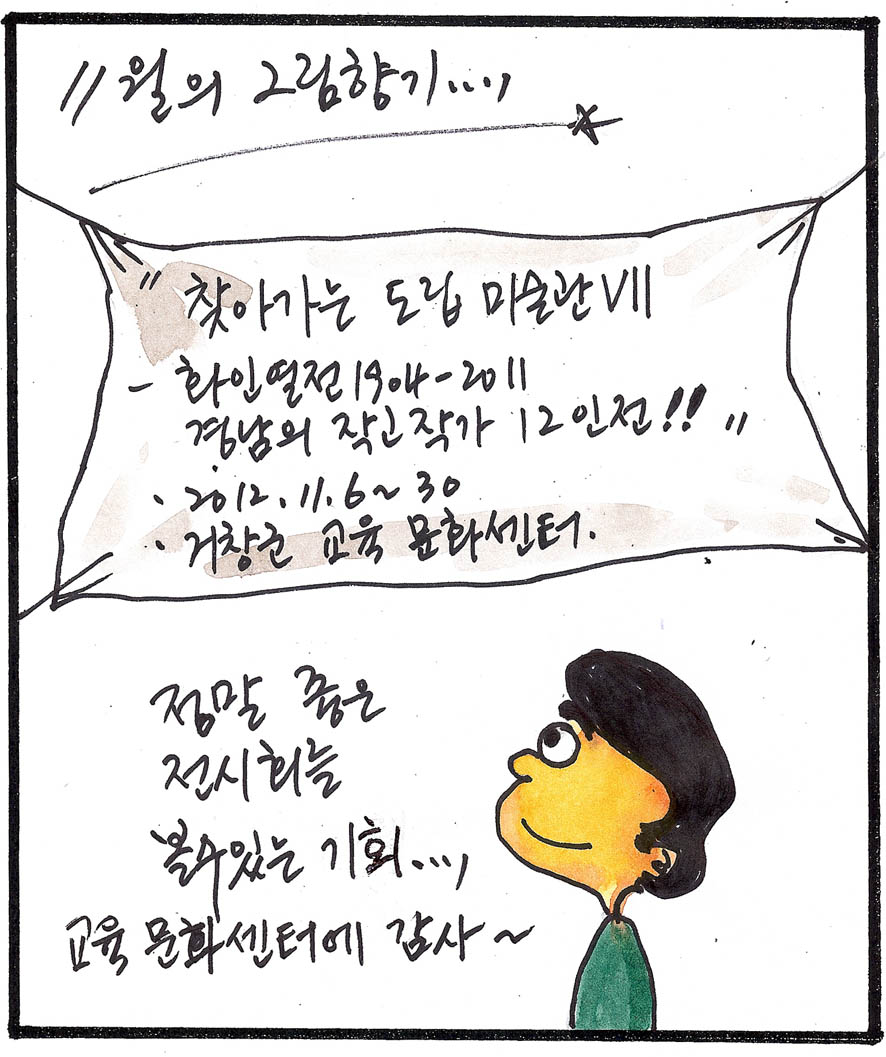 11월의 그림향기...,
" 찾아가는 도립 미술관 VII
- 화인열전 1904-2011
경남의 작고작가 12인전!! "
· 2012. 11. 6 ~ 30
· 거창군 교육 문화센터.
정말 좋은
전시회를
볼수있는 기회...,
교육 문화센터에 감사~